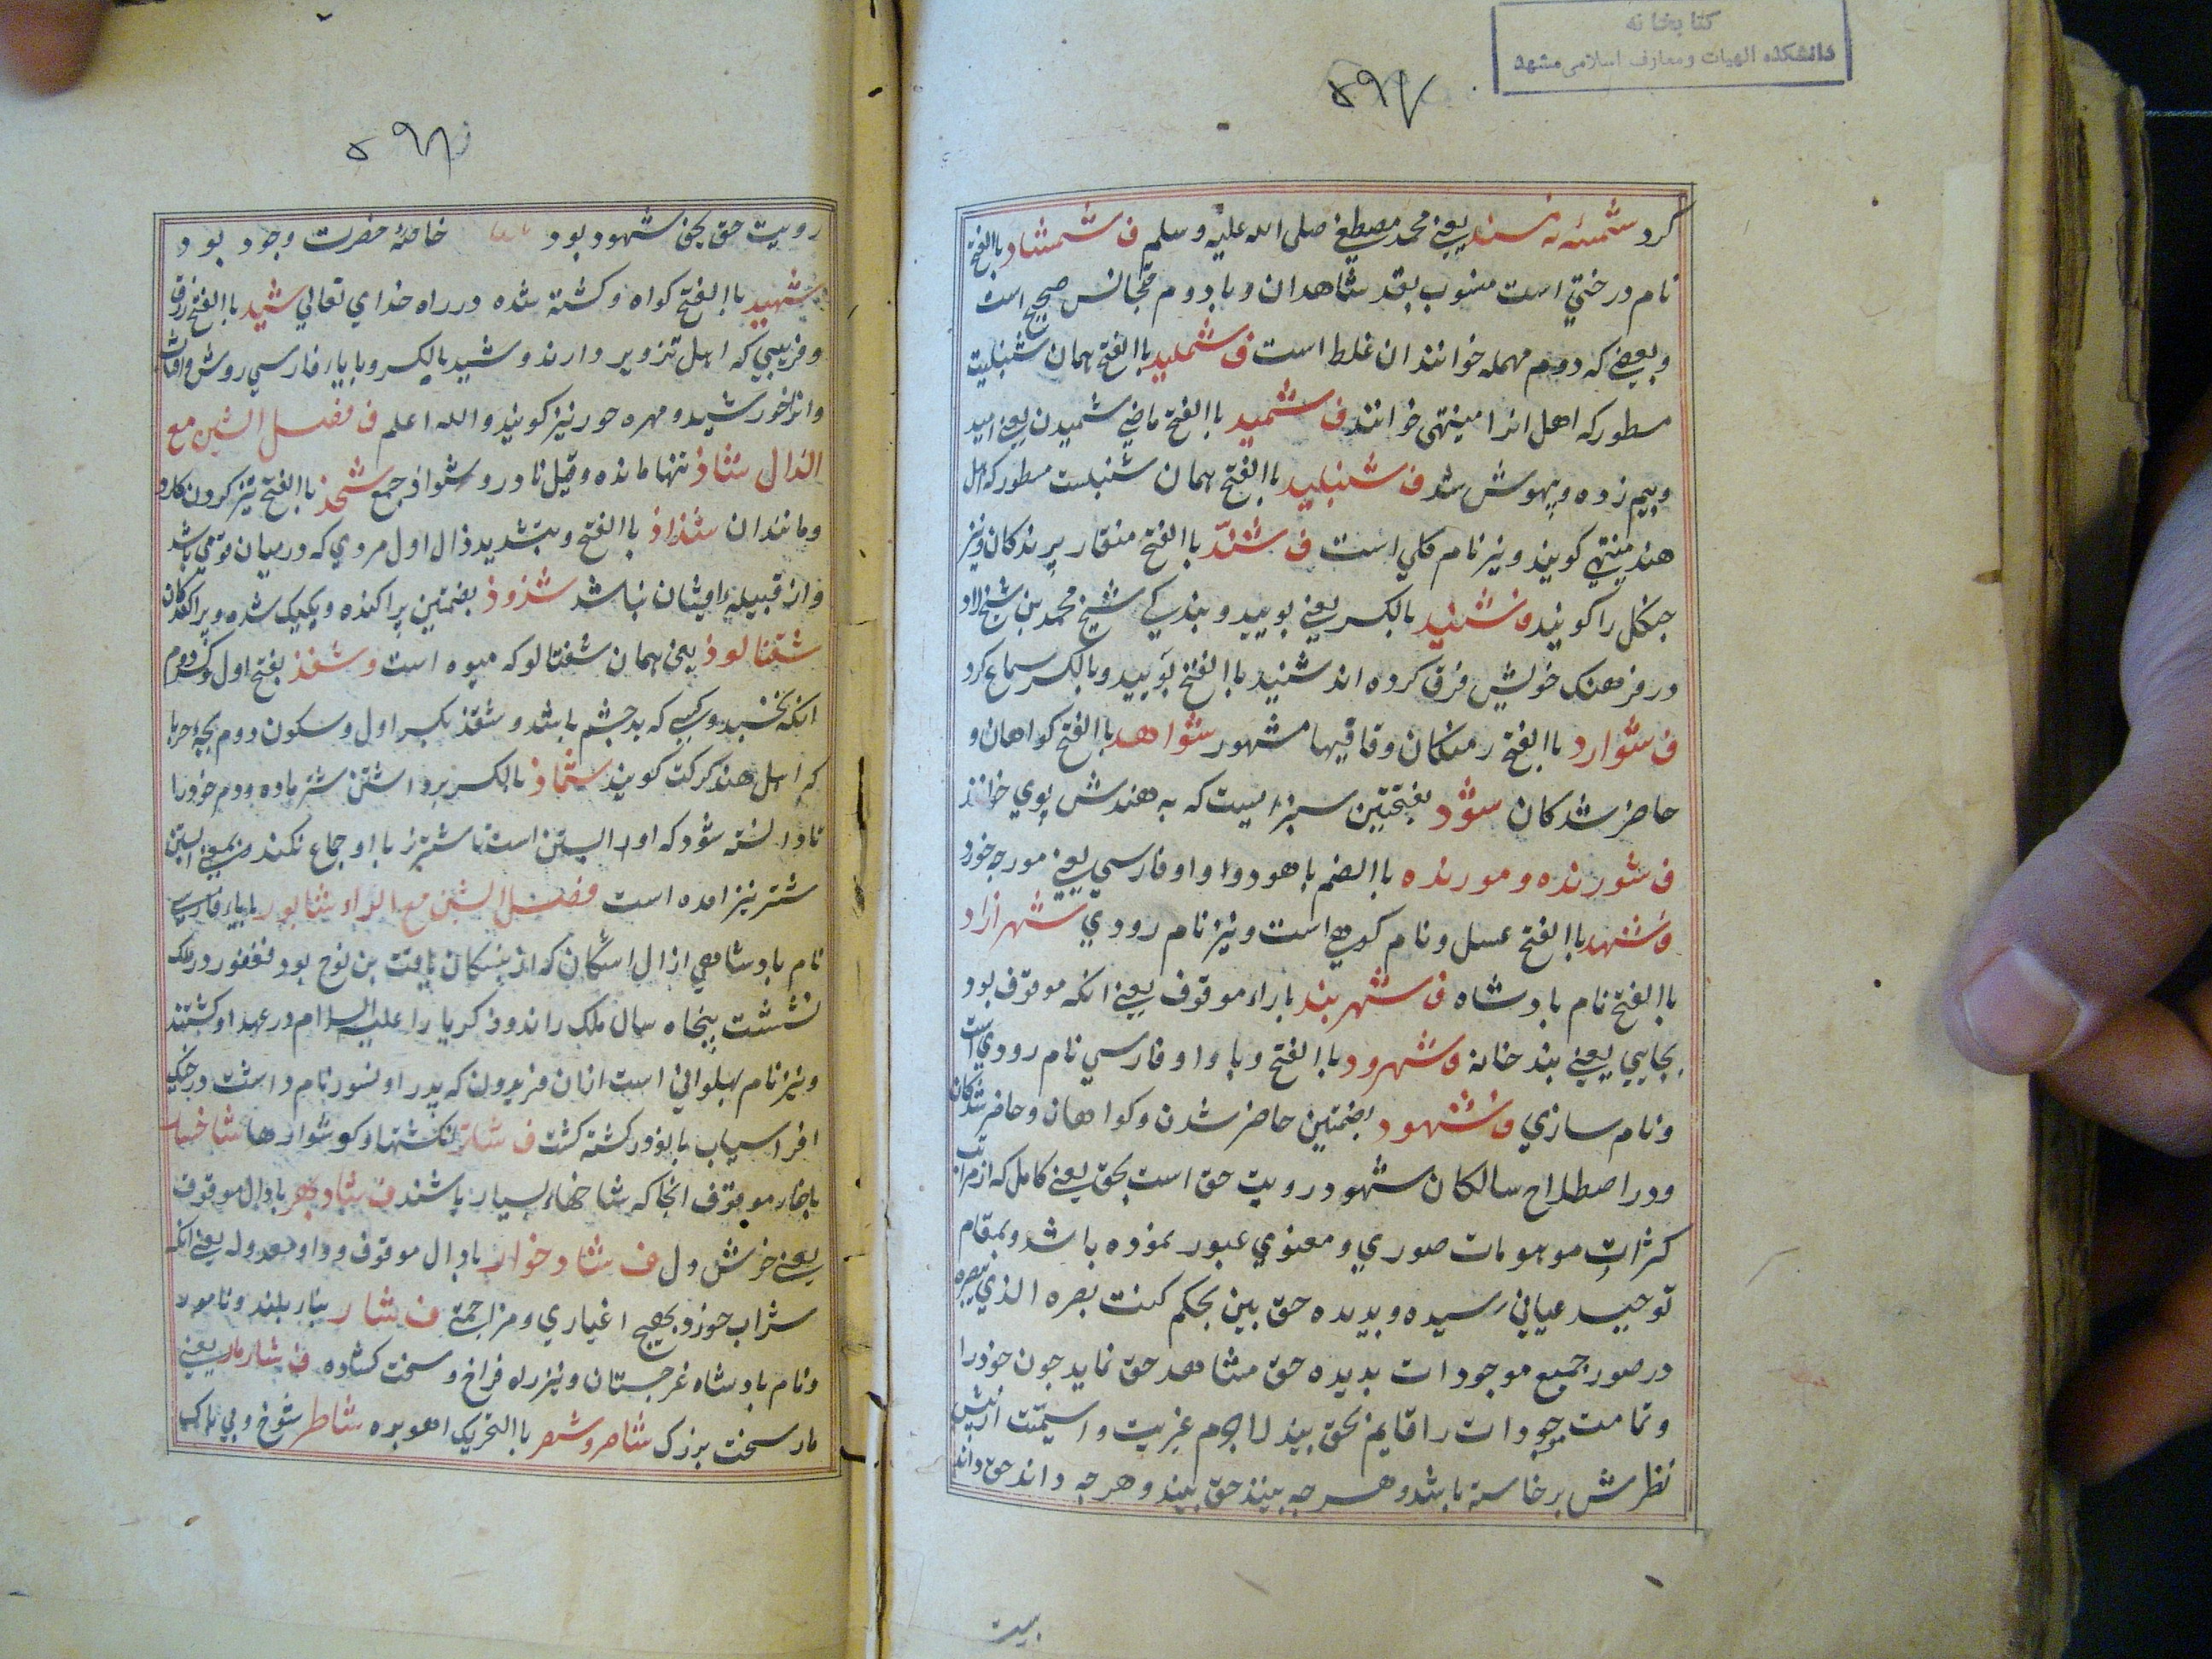 کتابخانه
دانشکده الهیات و معارف اسلامی مشهد
۵۹۷
کرد شمسه نه مسند یعنی محمد مصطفی صلی الله علیه و سلم ف شمشاد باالفتح
نام درختی است منسوب بقد شاهدان و با دوم مجانس صحیح است
و بعضی که دوم مهمله خوانند ان غلط است ف شملید باالفتح همان شنبلیت
مسطور که اهل انرا میتهی خوانند ف شمید باالفتح ماضی شمیدن یعنی امید
و بیم زده و بیهوش شد ف شنبلید باالفتح همان شنبلت مسطور که اهل
هند میتهی کویند و نیز نام کلی است ف شند باالفتح منقار پرندکان و نیز
جنکل را کویند ف شنید بالکسر یعنی بویید و بندکی شیخ محمد بن شیخ لاد
در فرهنک خویش فرق کرده اند شنید باالفتح بویید و بالکسر سماع کرد
ف شوارد باالفتح رمنکان و قافیها مشهور شواهد باالفتح کواهان و
حاضر شدکان شود بفتحتین سبزه ایست که به هندش پوی خوانند
ف شورنده و مورنده باالضم با هر دو واو فارسی یعنی مورچه خورد
ف شهد باالفتح عسل و نام کوهی است و نیز نام رودی شهر ازاد
باالفتح نام بادشاه ف شهربند با راء موقوف یعنی انکه موقوف بود
بجایی یعنی بند خانه ف شهرود باالفتح و با واو فارسی نام رودی است
و نام سازی ف شهود بضمتین حاضر شدن و کواهان و حاضر شدکان
و در اصطلاح سالکان شهود رویت حق است بحق یعنی کامل که از مراتب
کثرات موهومات صوری و معنوی عبور نموده باشد و بمقام
توحید عیانی رسیده و بدیده حق بین بحکم کنت بصره الذی یبصر به
در صور جمیع موجودات بدیده حق مشاهد حق نماید چون خود را
و تمامت موجودات را قایم بحق بیند لاجرم غیریت و اسمیت از پیش
نظرش برخاسته باشد و هرچه بیند حق بیند و هرچه داند حق داند
بیت
۵۹۸
رویت حق بحق شهود بود خاصهٔ حضرت وجود بود
شهید باالفتح کواه و کشته شده در راه خدای تعالی شید باالفتح زرق
و فریبی که اهل تزویر دارند و شید بالکسر و با یاء فارسی روش و افتاب
و انرا خورشید و مهره حور نیز کویند و الله اعلم ف فصل الشین مع
الذال شاذ تنها مانده و قیل نادر و شواذ جمع شحذ باالفتح تیز کردن کارد
و مانند ان شذاذ باالفتح و بتشدید ذال اول مردی که در میان قومی باشد
و از قبیلهٔ ایشان نباشد شذوذ بضمتین پراکنده و یکیک شده و پراکندکان
شفتالوذ یعنی همان شفتالو که میوه است و شقذ بفتح اول و کسر دوم
انکه نخسبد و کسی که بدچشم باشد و شقذ بکسر اول و سکون دوم بچهٔ حربا
که اهل هند کرکت کویند شماذ بالکسر برداشتن شتر ماده دم خود را
تا دانسته شود که او ابستن است تا شتر نر با او جماع نکند و بمعنی ابستن
شتر نیز امده است فصل الشین مع الراء شابور با باء فارسی
نام بادشاهی از ال اشکان که از نبسکان یافث بن نوح بود فغفور در ملک
نشست پنجاه سال ملک راند و ذکریا را علیه السلام در عهد او کشتند
و نیز نام پهلوانی است از ان فریدون که پدر او نسور نام داشت در جنک
افراسیاب با نوذر کشته کشت ف شاخسار
با خاء موقوف انجا که شاخها بسیار باشند ف شاد بهر با دال موقوف
یعنی خوش دل ف شاد خوار با دال موقوف و واو معدوله یعنی انکه
شراب خورد بی هیچ اغیاری و مزاحمتی ف شار بناء بلند و نامور
و نام بادشاه غرجستان و نیز راه فراخ و سخت کشاده ف شارمار یعنی
مار سخت بزرک شاصر و شصر باالتحریک اهو بره شاطر شوخ و بی باک